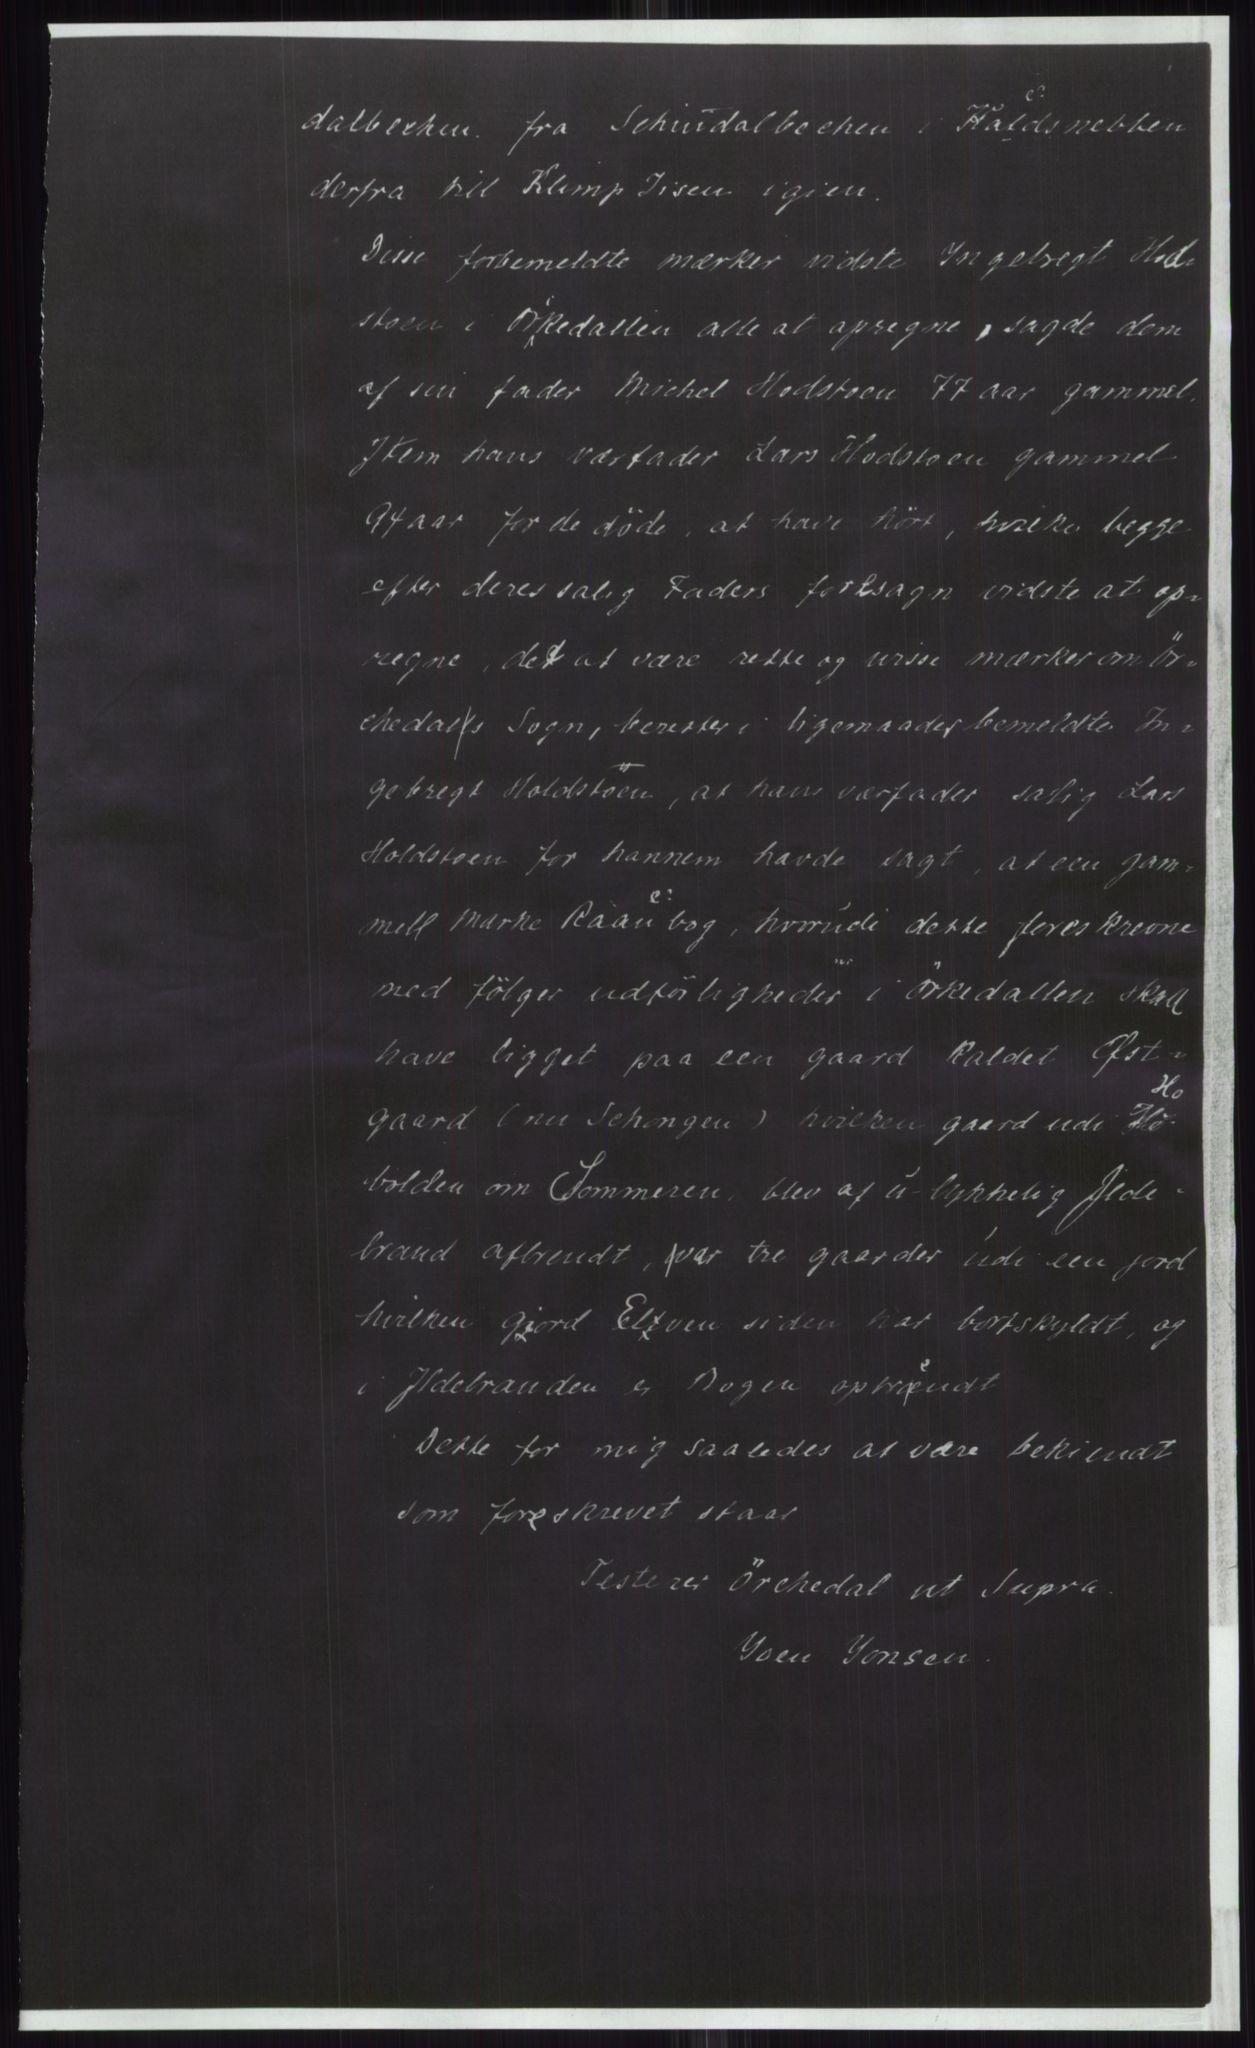 dalbexhen. fra Schündalbechen i Håldsnebben
derfra till Klimp Iisen igien.
Disse forbemeldte mærker vidste Yngebregt Hod-
stoen i Örkedallen alle at opregne, sagde dem
af sin fader Michel Hodstoen 77 aar gammel.
Item hans værfader Lars Hodstoen gammel
94 aar for de döde, at have hört, hvilke begge
efter deres salig Faders foresagn vidste at op-
regne, det at være rette og visse mærker om Ör-
chedals Sogn, beretter i ligemaader bemeldte In-
gebregt Holdstöen, at hans værfader salig Lars
Holdstoen for hannem havde sagt, at een gam-
mell Marke Råaü bog, hvorudi dette foreskrevne
med fölger udförligheder i Örkedallen skall
have ligget paa een gaard kaldet Øst-
gaard (nu Schongen) hvilken gaard udi Hö-
bolden om Sommeren, blev af ü-lykkelig Ilde-
brand afbrendt, var tre gaarder údi een jord
hvilken gjord Elfven siden har bortskyldt, og
i Ildebranden er Bogen opbrændt
Dette for mig saaledes at være bekiendt
som foreskrevet staar
Testerer Örchedal ut Supra.
Yoen Yonsen.